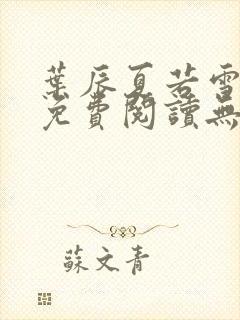 葉辰夏若雪
免費閱讀無
蘇文青